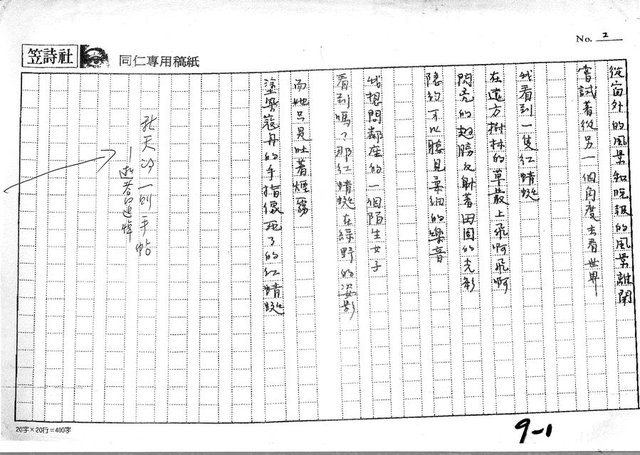 No. 2
笠詩社 同仁專用稿紙
從窗外的風景和晚報的風景離開
嘗試著從另一個角度去看世界
我看到一隻紅蜻蜓
在遠方樹林的草叢上飛啊飛啊
閃亮的翅膀反射著田園的光彩
隱約可以聽見柔細的樂音
我想問鄰座的一個陌生女子
看到嗎？那紅蜻蜓在綠野的姿影
而她只是吐著煙霧
塗紫蔻丹的手指像死了的紅蜻蜓
的一則手帖
20字×20行=400字
9-1